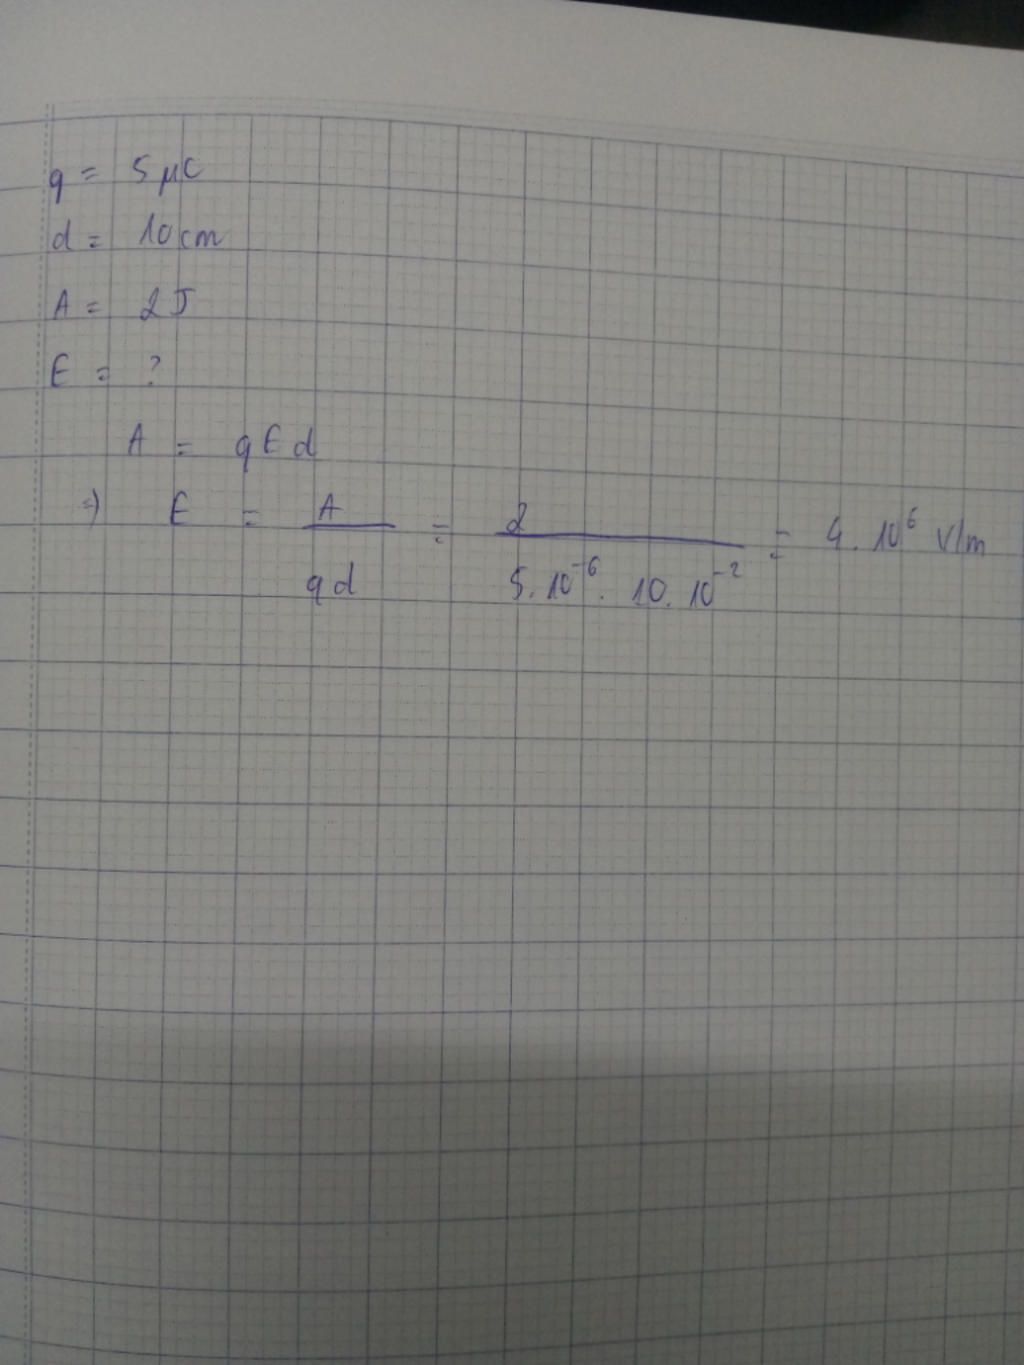 q = 5 μC
d = 10 cm
A = 2 J
E = ?
A = q E d
=> E = A / qd = 2 / 5.10⁻⁶. 10.10⁻² = 4.10⁶ V/m